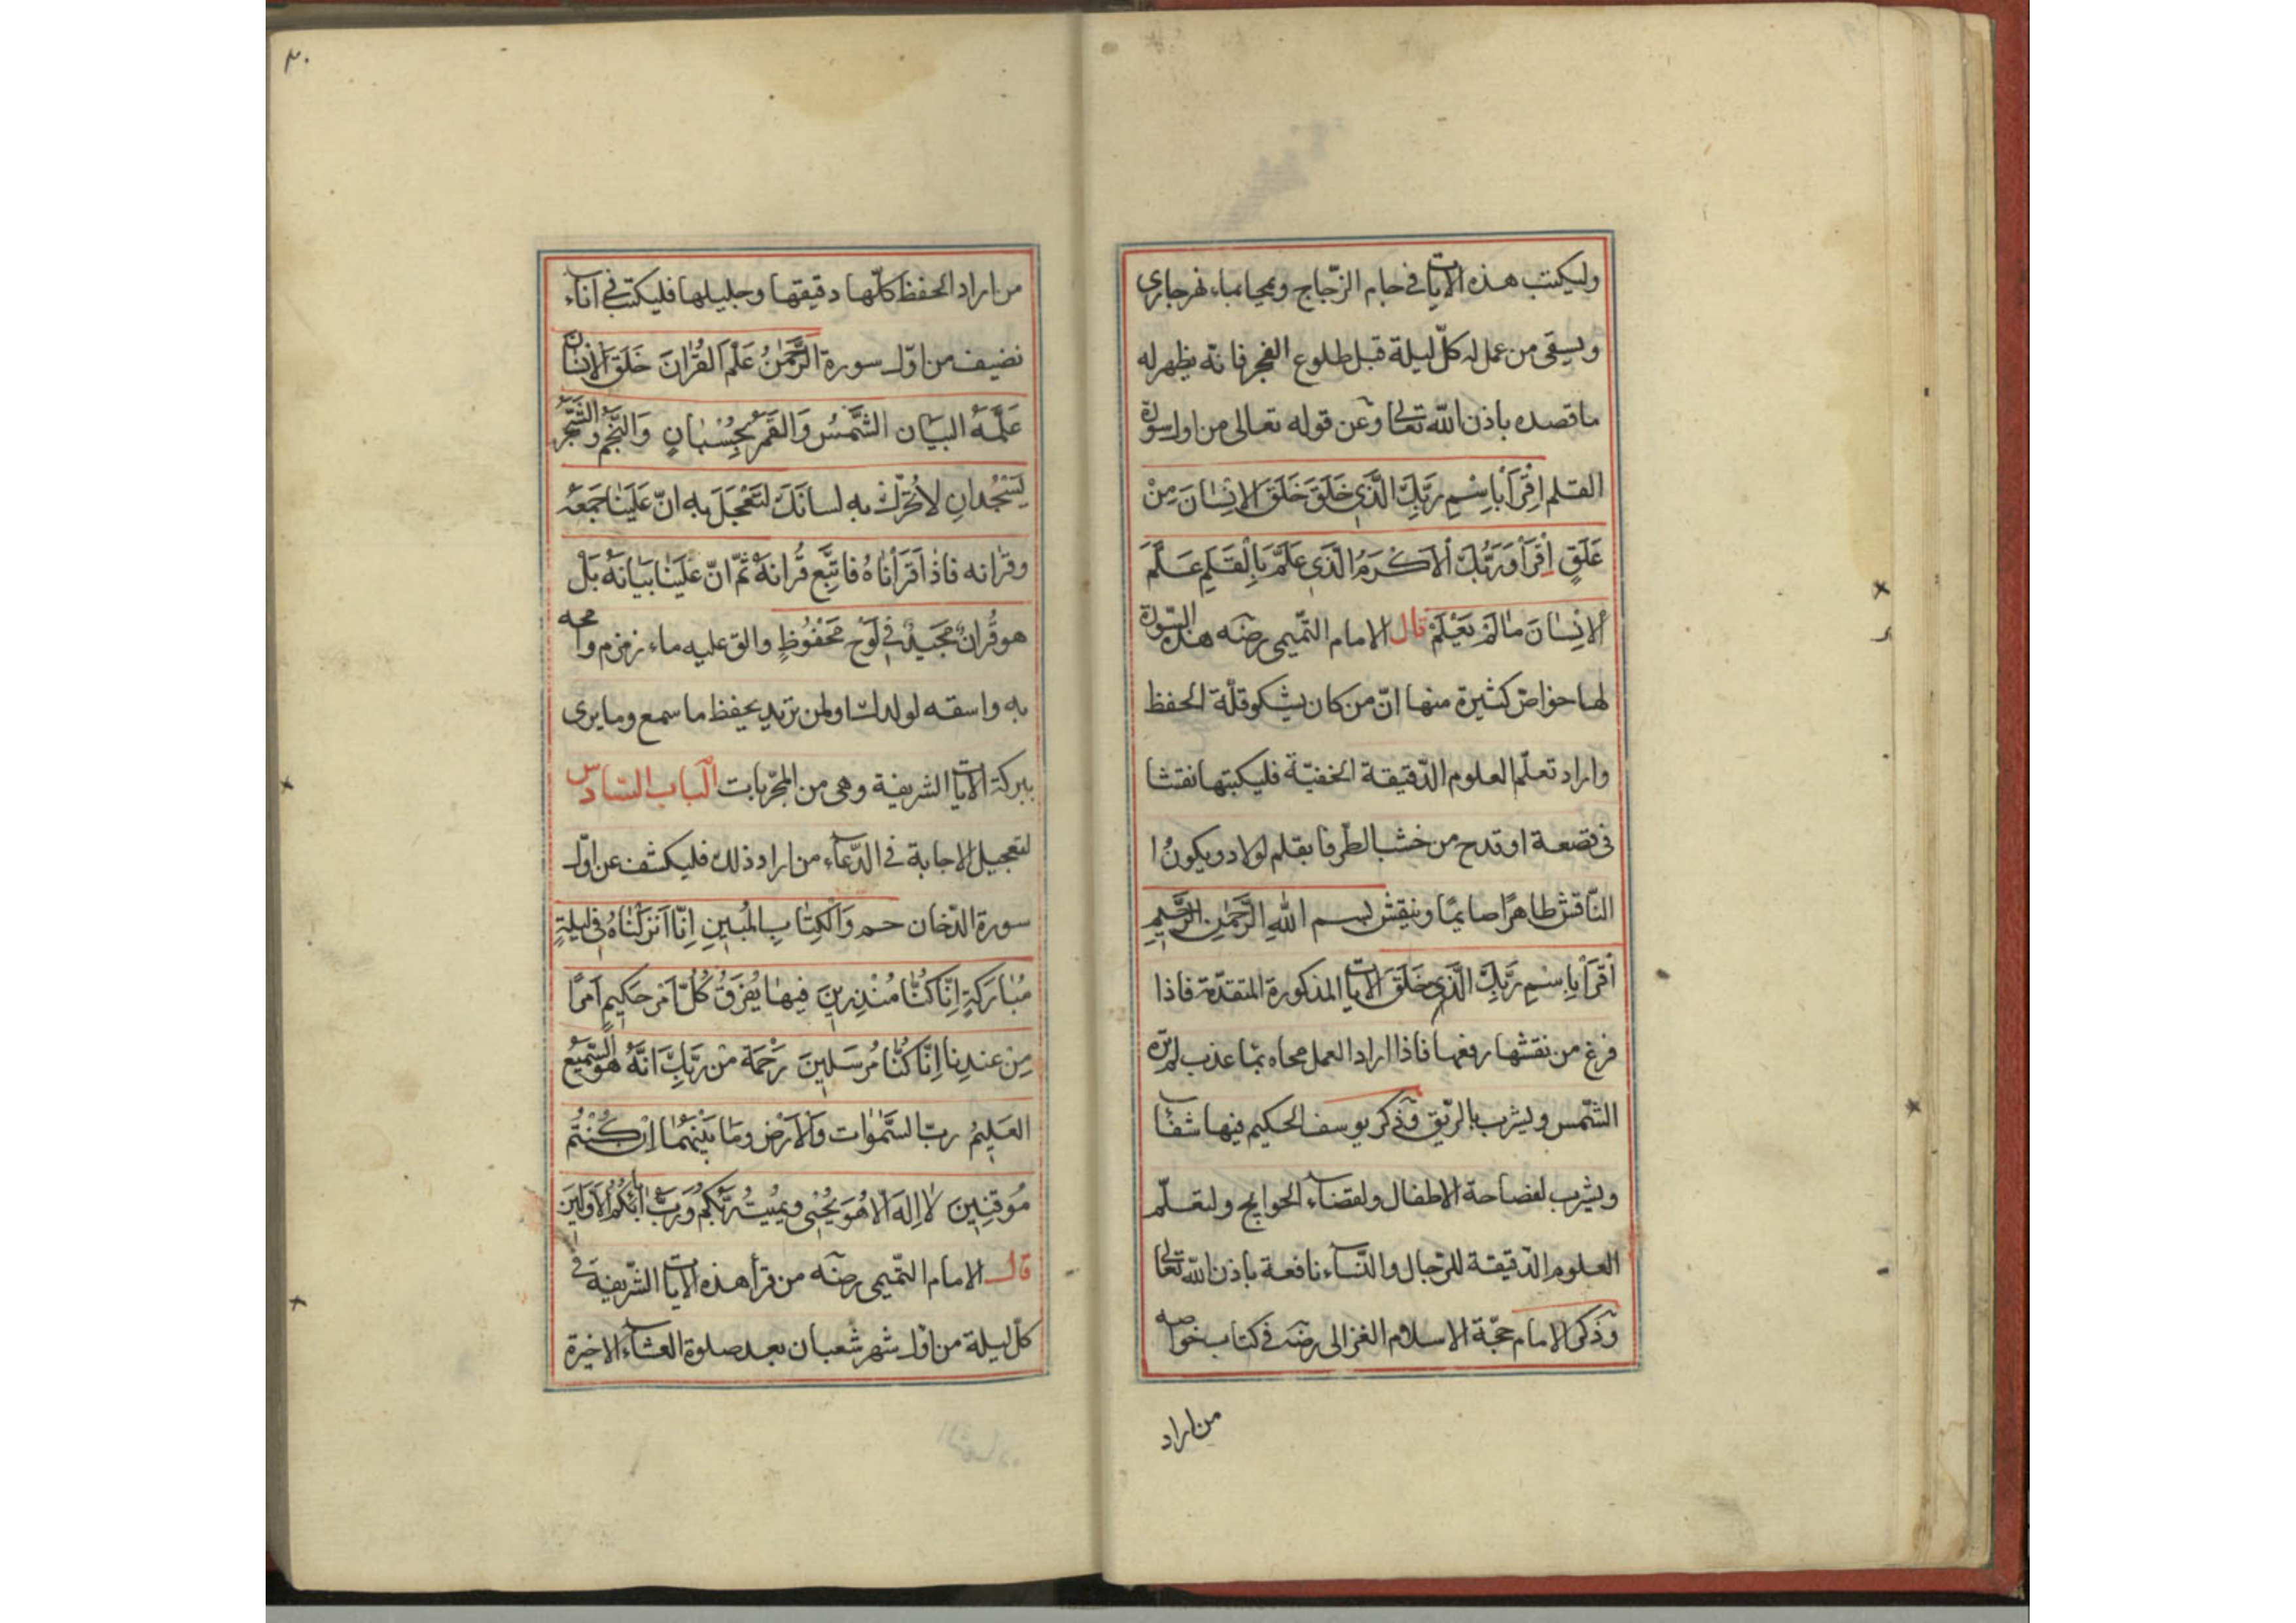 وليكتب هذه الايات فى جام الزّجاج ويمحيا بماء نهر جارى
ويسقى من عمل له كلّ ليلة قبل طلوع الفجر فانّه يظهر له
ما قصده باذن الله تعالى وعن قوله تعالى من اول سورة
القلم اِقْرَأْ بِاسْمِ رَبِّكَ الَّذِى خَلَقَ خَلَقَ الاِنْسَانَ مِنْ
عَلَقٍ اِقْرَأْ وَرَبُّكَ الْاَكْرَمُ الَّذِى عَلَّمَ بِالْقَلَمِ عَلَّمَ
الْاِنْسَانَ مَالَمْ يَعْلَمْ قال الامام التّميمى رضه هذه السّورة
لها خواصّ كثيرة منها انّ من كان يشكو قلّة الحفظ
واراد تعلّم العلوم الدّقيقة الخفيّة فليكتبها نقشا
فى قصعة او قدح من خشب الطّرفا بقلم فولاد ويكون
النّاقش طاهرًا صايمًا وينقش بسم اللهِ الرَّحْمٰنِ الرَّحِيمِ
اقْرَأْ بِاسْمِ رَبِّكَ الَّذِى خَلَقَ الايات المذكورة المتقدّمة فاذا
فرغ من نقشها رفعها فاذا اراد العمل محاه بماء عذب لم تره
الشّمس ويشرب بالرّيق وذكر يوسف الحكيم فيها شفاء
ويشرب لفصاحة الاطفال ولقضاء الحوايج ولتعلّم
العلوم الدّقيقة للرّجال والنّساء نافعة باذن الله تعالى
وذكر الامام حجّة الاسلام الغزالى رضه فى كتاب خواصه
من اراد
٣٠
من اراد الحفظ كلّها دقيقها وجليلها فليكتب فى اناء
نضيف من اوّل سورة الرَّحْمٰنُ عَلَّمَ القُرْانَ خَلَقَ الْاِنْسَانَ
عَلَّمَهُ البَيَان الشَّمْسُ وَالقَمَرُ بِحُسْبَانٍ وَالنَّجْمُ وَالشَّجَرُ
يَسْجُدَانِ لَا تُحَرِّكْ بِهِ لِسَانَكَ لِتَعْجَلَ بِهِ انّ عَلَيْنَا جَمْعَهُ
وقرانه فَاذَا قَرَأْنَاهُ فَاتَّبِع قُرانَهُ ثُمّ انّ عَلَيْنَا بَيَانَهُ بَلْ
هو قُرانٌ مَجِيدٌ فِى لَوْحٍ مَحْفُوظٍ والق عليه ماء زمزم وامحه
به واسقه لولدك او لمن تريد يحفظ ما سمع وما يرى
ببركة الايات الشريفة وهى من المجرّبات الباب السّادس
لتعجيل الاجابة فى الدّعاء من اراد ذلك فليكشف عن اوّل
سورة الدّخان حم وَالْكِتَابِ المُبِينِ اِنّا اَنْزَلْنَاهُ فِى لَيلةٍ
مُبَارَكَةٍ اِنّا كُنّا مُنْذِرِينَ فِيهَا يُفْرَقُ كُلّ اَمْرٍ حَكِيمٍ اَمْرًا
مِنْ عندِنا اِنَّا كُنَّا مُرْسَلِينَ رَحْمَة مِنْ رَبِّكَ انَّهُ هو السَّمِيعُ
العَلِيمُ ربّ السَّمٰوَات وَالْاَرْضِ ومَا بَيْنَهُمَا اِنْ كُنْتُمْ
مُوقِنِينَ لَا اِلٰهَ الّا هُوَ يُحْيِى ويُمِيتُ رَبُّكُمْ وَرَبُّ اٰبَائِكُمُ الْاَوَّلِينَ
قال الامام التّميمى رضه من قرأ هذه الايات الشّريفة فى
كلّ ليلة من اوّل شهر شعبان بعد صلوة العشاء الاخيرة